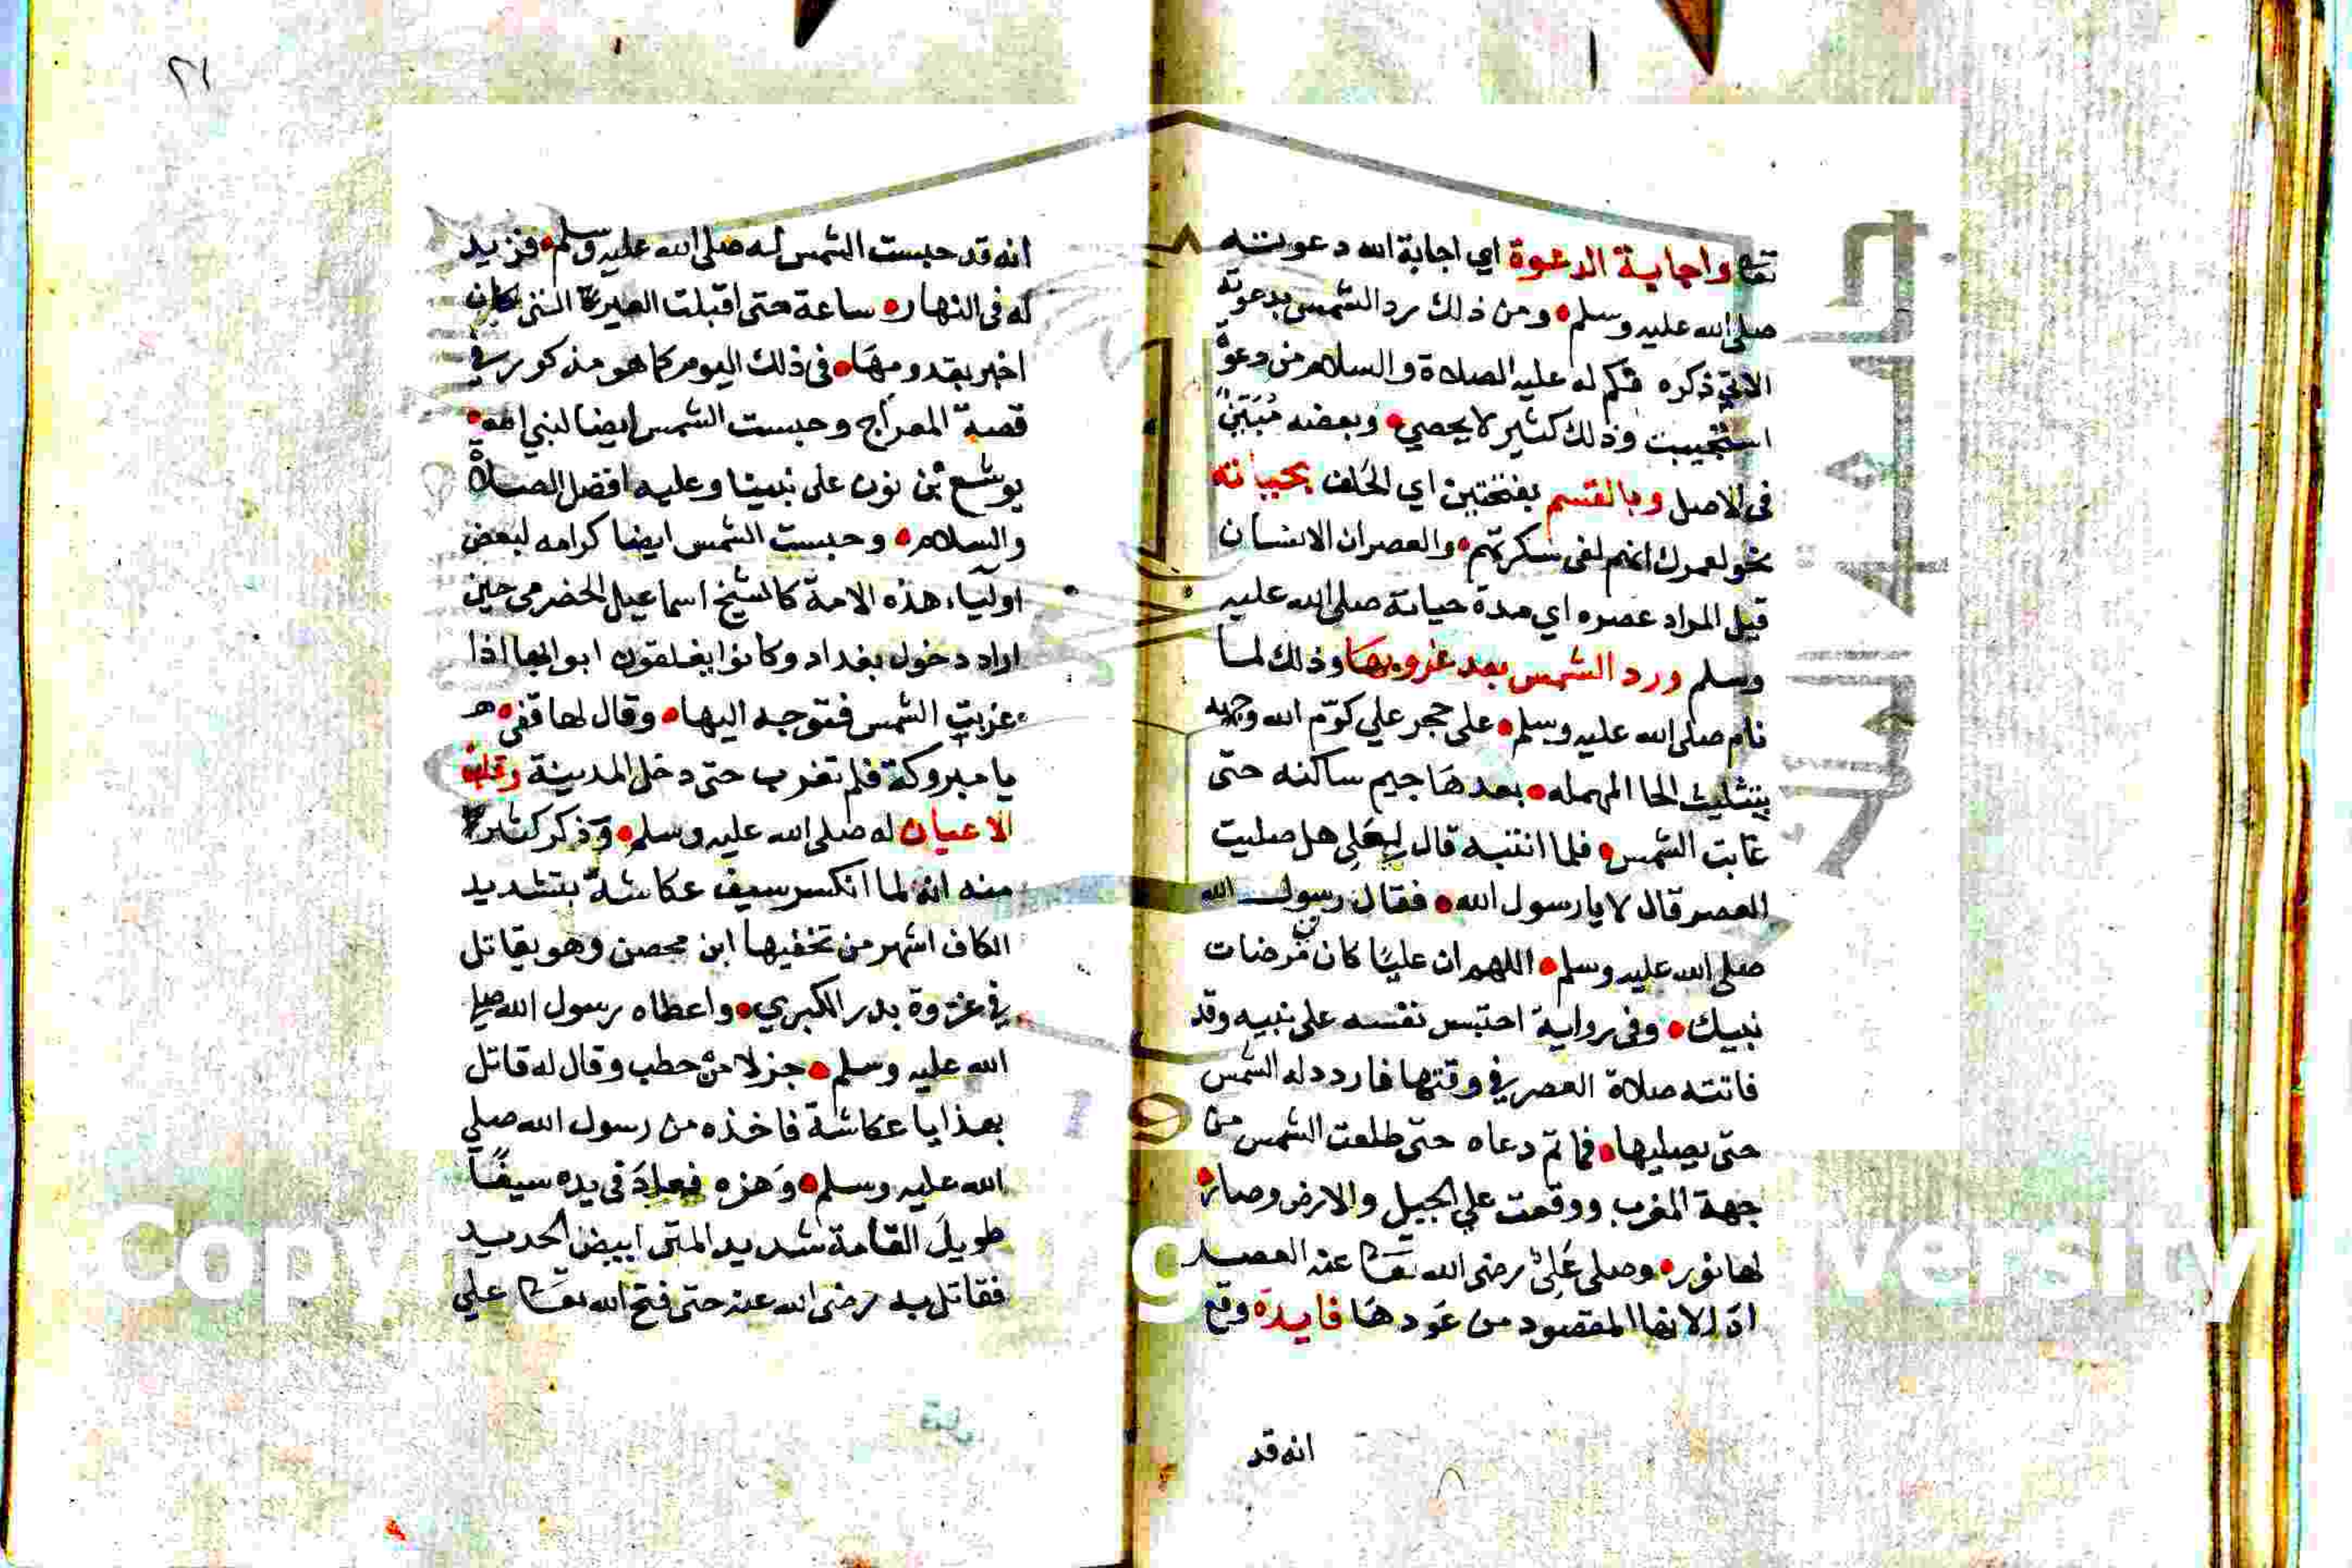 تعا واجابة الدعوة اي اجابة الله دعوته
صلى الله عليه وسلم ومن ذلك رد الشمس بدعوته
الاتي ذكره فكم له عليه الصلاة والسلام من دعوة
استجيبت وذلك كثير لا يحصي وبعضه مبين
في الاصل وبالقسم بفتحتين اي الحلف بحياته
نحو لعمرك انهم لفي سكرتهم والعصر ان الانسان
قيل المراد عصره اي مدة حياته صلى الله عليه
وسلم ورد الشمس بعد غروبها وذلك لما
نام صلى الله عليه وسلم على حجر علي كرم الله وجهه
بتثليث الحا المهمله بعدها جيم ساكنه حتى
غابت الشمس فلما انتبه قال لعلي هل صليت
العصر قال لا يا رسول الله فقال رسول الله
صلى الله عليه وسلم اللهم ان عليا كان في مرضات
نبيك وفي رواية احتبس نفسه على نبيه وقد
فاتته صلاة العصر في وقتها فاردد له الشمس
حتى يصليها فما تم دعاه حتى طلعت الشمس من
جهة المغرب ووقعت علي الجبل والارض وصار
لها نور وصلى علي رضى الله تعا عنه العصر
اد الانها المقصود من عودها فايدة وقع
انه قد
٢١
انه قد حبست الشمس له صلى الله عليه وسلم فزيد
له في النهار ساعة حتى اقبلت العير التي كان
اخبر بقدومها في ذلك اليوم كما هو مذكور في
قصة المعراج وحبست الشمس ايضا لنبي الله
يوشع بن نون على نبينا وعليه افضل الصلاة
والسلام وحبست الشمس ايضا كرامه لبعض
اولياء هذه الامة كالشيخ اسماعيل الحضرمي حين
اراد دخول بغداد وكانوا يغلقون ابوابها اذا
غربت الشمس فتوجه اليها وقال لها قفي
يا مبروكة فلم تغرب حتى دخل المدينة وقلب
الاعيان له صلى الله عليه وسلم وذكر كثير
منه انه لما انكسر سيف عكاشة بتشديد
الكاف اشهر من تخفيها ابن محصن وهو يقاتل
في غزوة بدر الكبري واعطاه رسول الله صلى
الله عليه وسلم جزلا من حطب وقال له قاتل
بهذا يا عكاشة فاخذه من رسول الله صلي
الله عليه وسلم وهزه فعاد في يده سيفا
طويل القامة شديد المتن ابيض الحديد
فقاتل به رضى الله عنه حتى فتح الله تعا علي